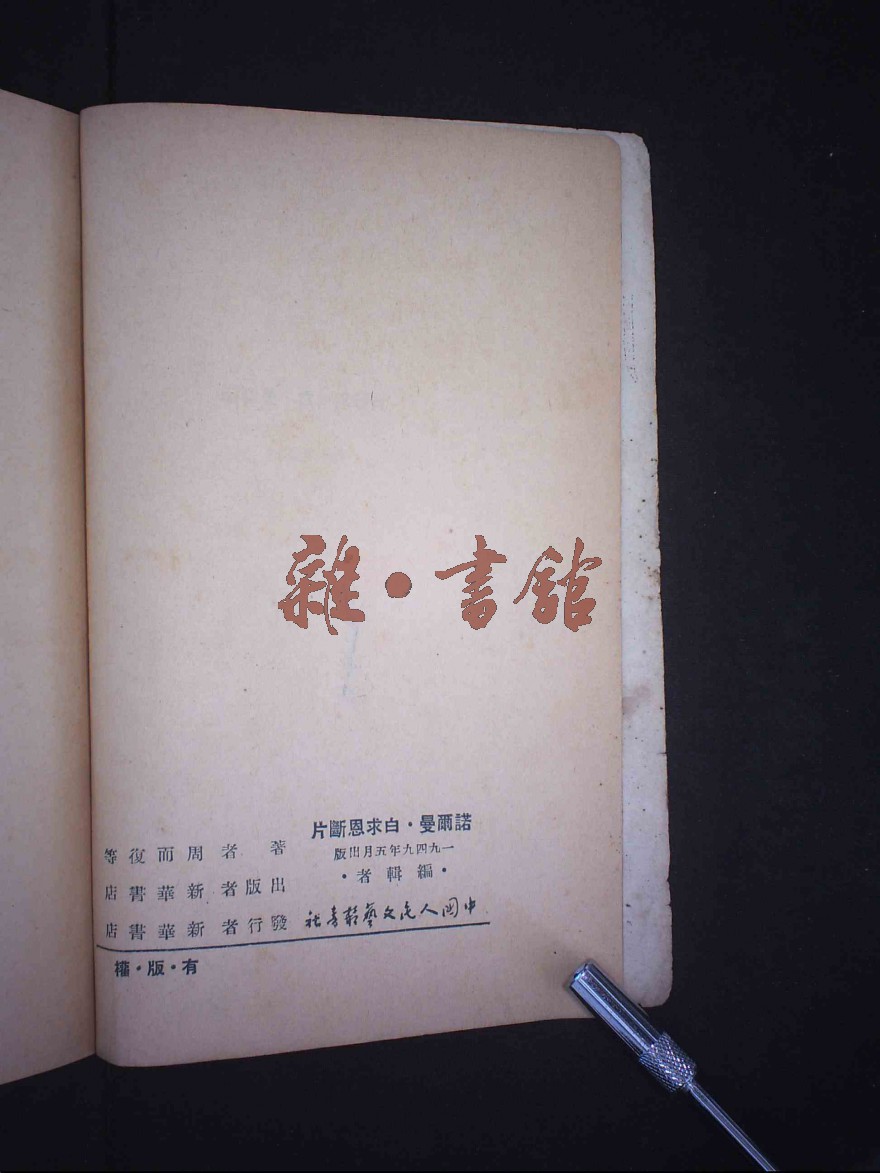 雜·書館
諾爾曼·白求恩斷片
一九四九年五月出版
·編輯者·
中國人民文藝叢書社
著者周而復等
出版者新華書店
發行者新華書店
有·版·權